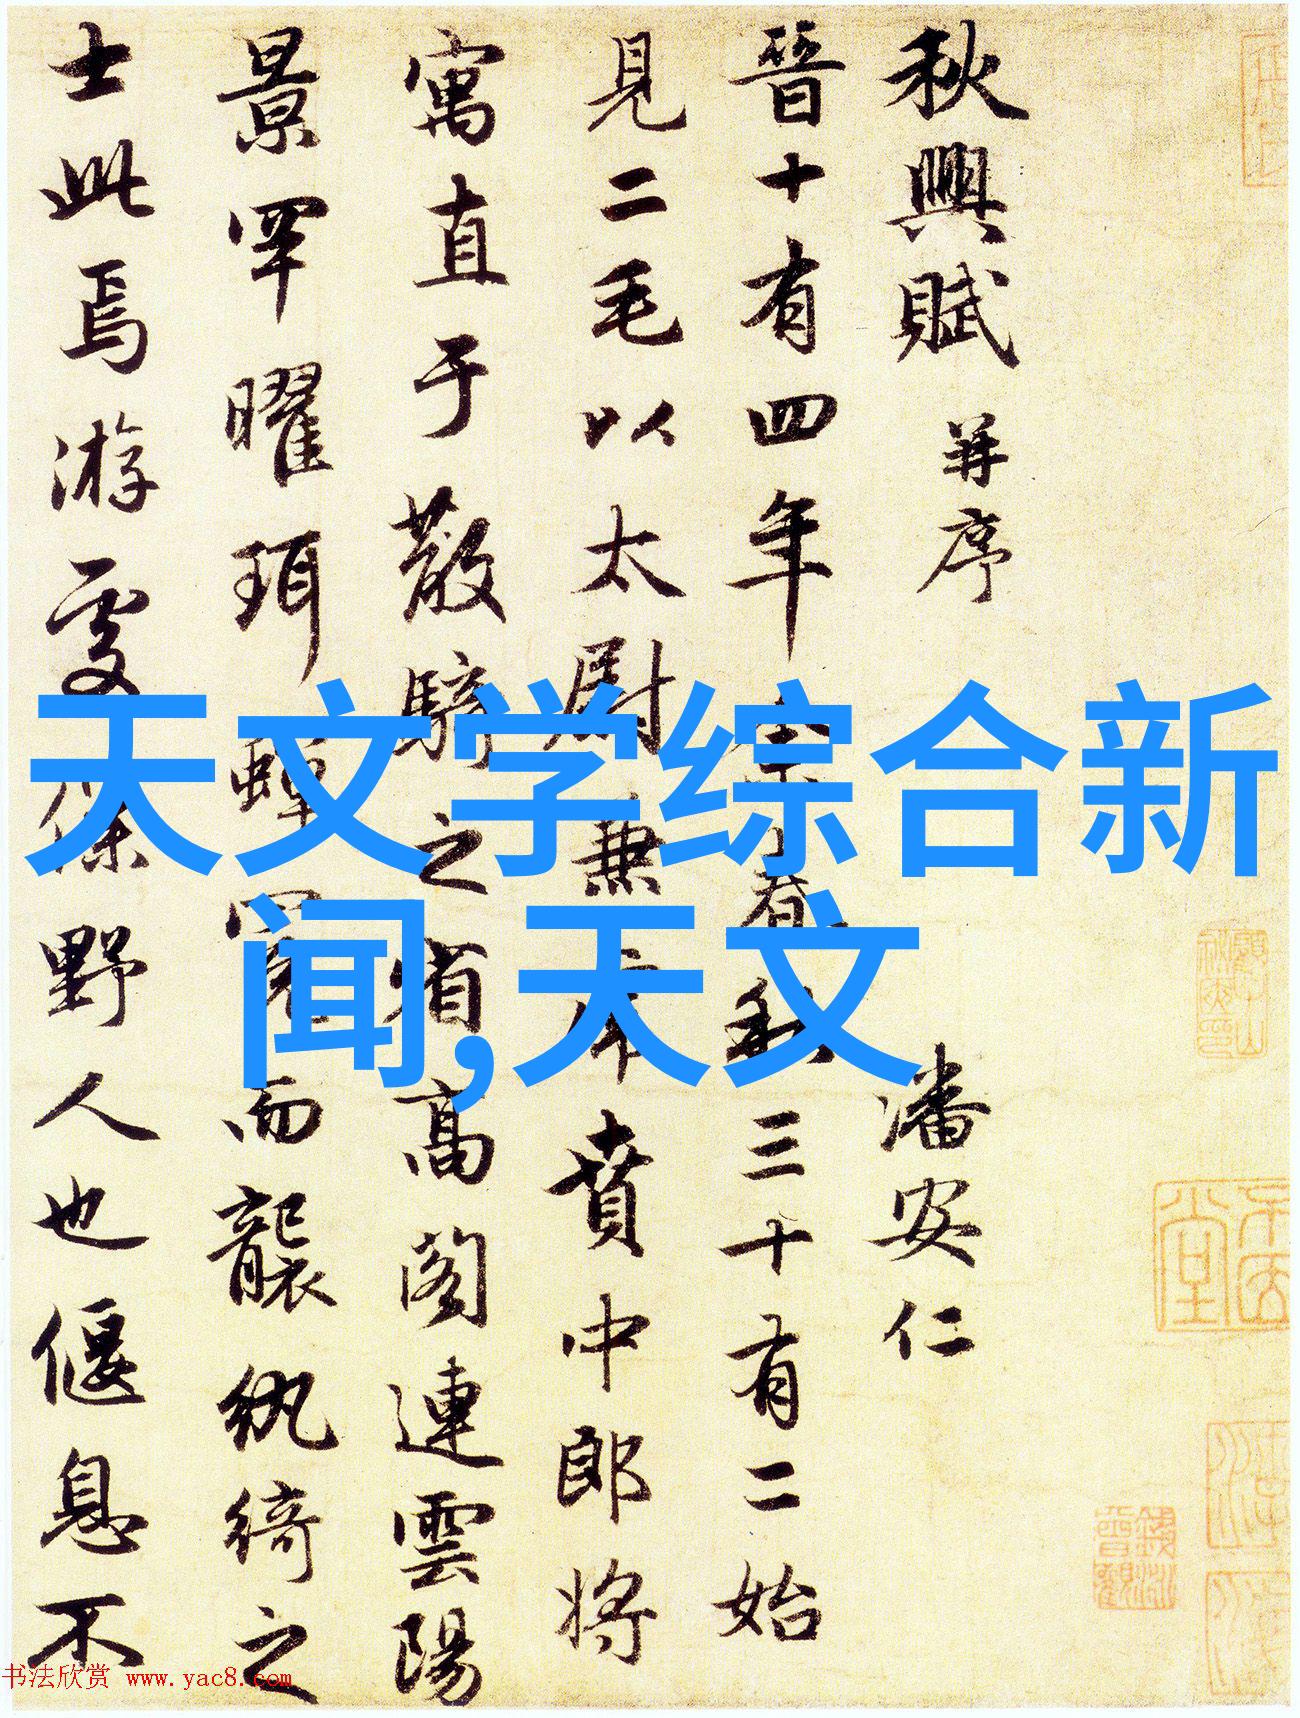 秋興賦 并序 潘安仁
晉十有四年余春秋三十有二始
見二毛以太尉兼虎賁中郎將
寓直于散騎之省高閣連雲陽
景罕曜珥蟬冕而襲紈綺之
士此焉游處僕野人也偃息不
天文学综合新
闻,天文
书法欣赏 www.yac8.com